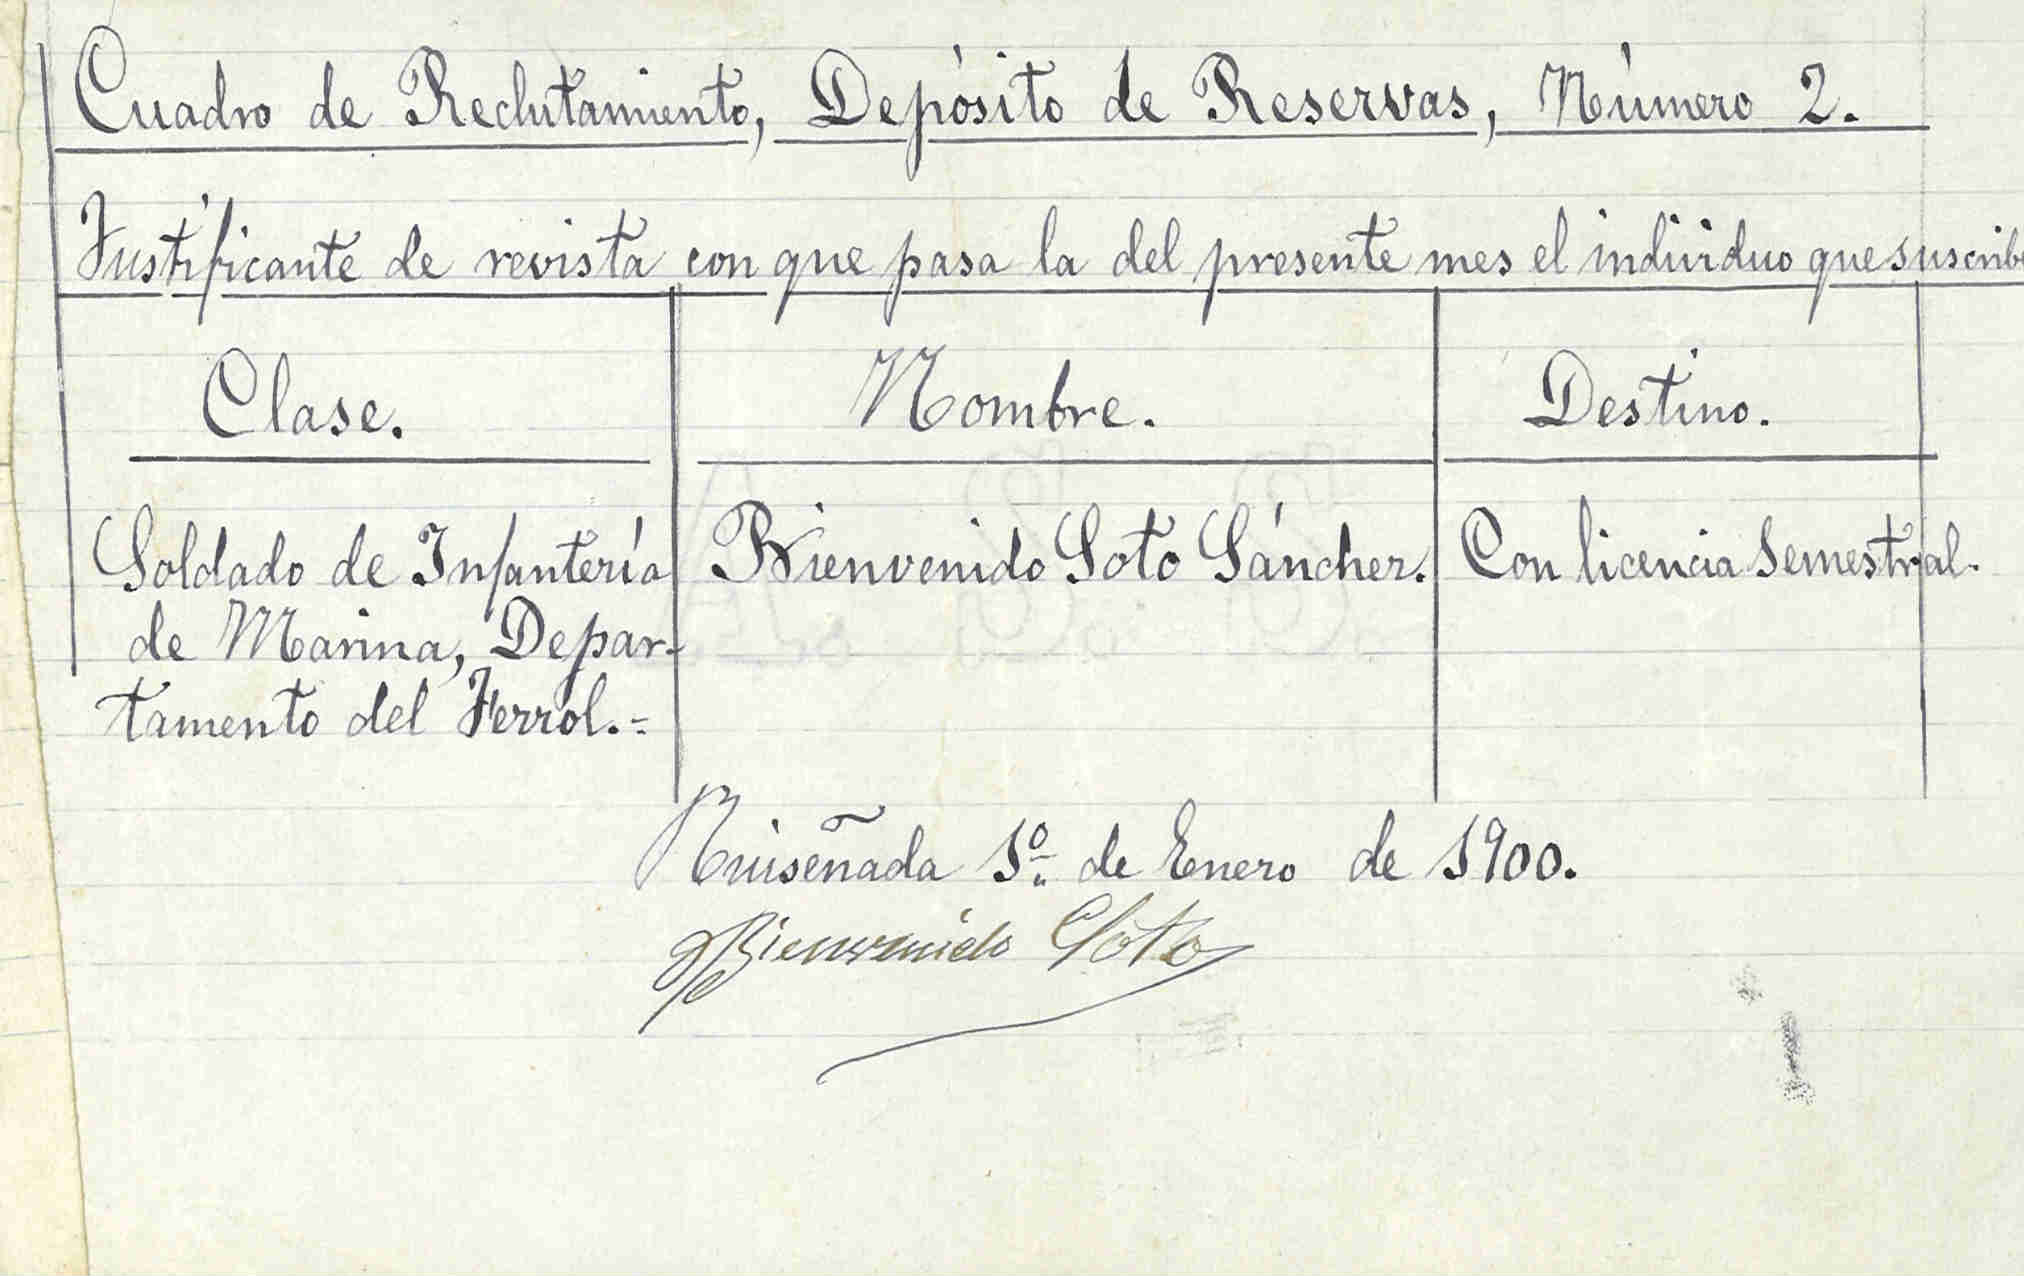 Cuadro de Reclutamiento, Depósito de Reservas, Número 2.
Justificante de revista con que pasa la del presente mes el individuo que suscribe
Clase. Nombre. Destino.
Soldado de Infantería Bienvenido Soto Sánchez. Con licencia Semestral.
de Marina, Depar-
tamento del Ferrol.=
Ruiseñada 1º de Enero de 1900.
Bienvenido Soto